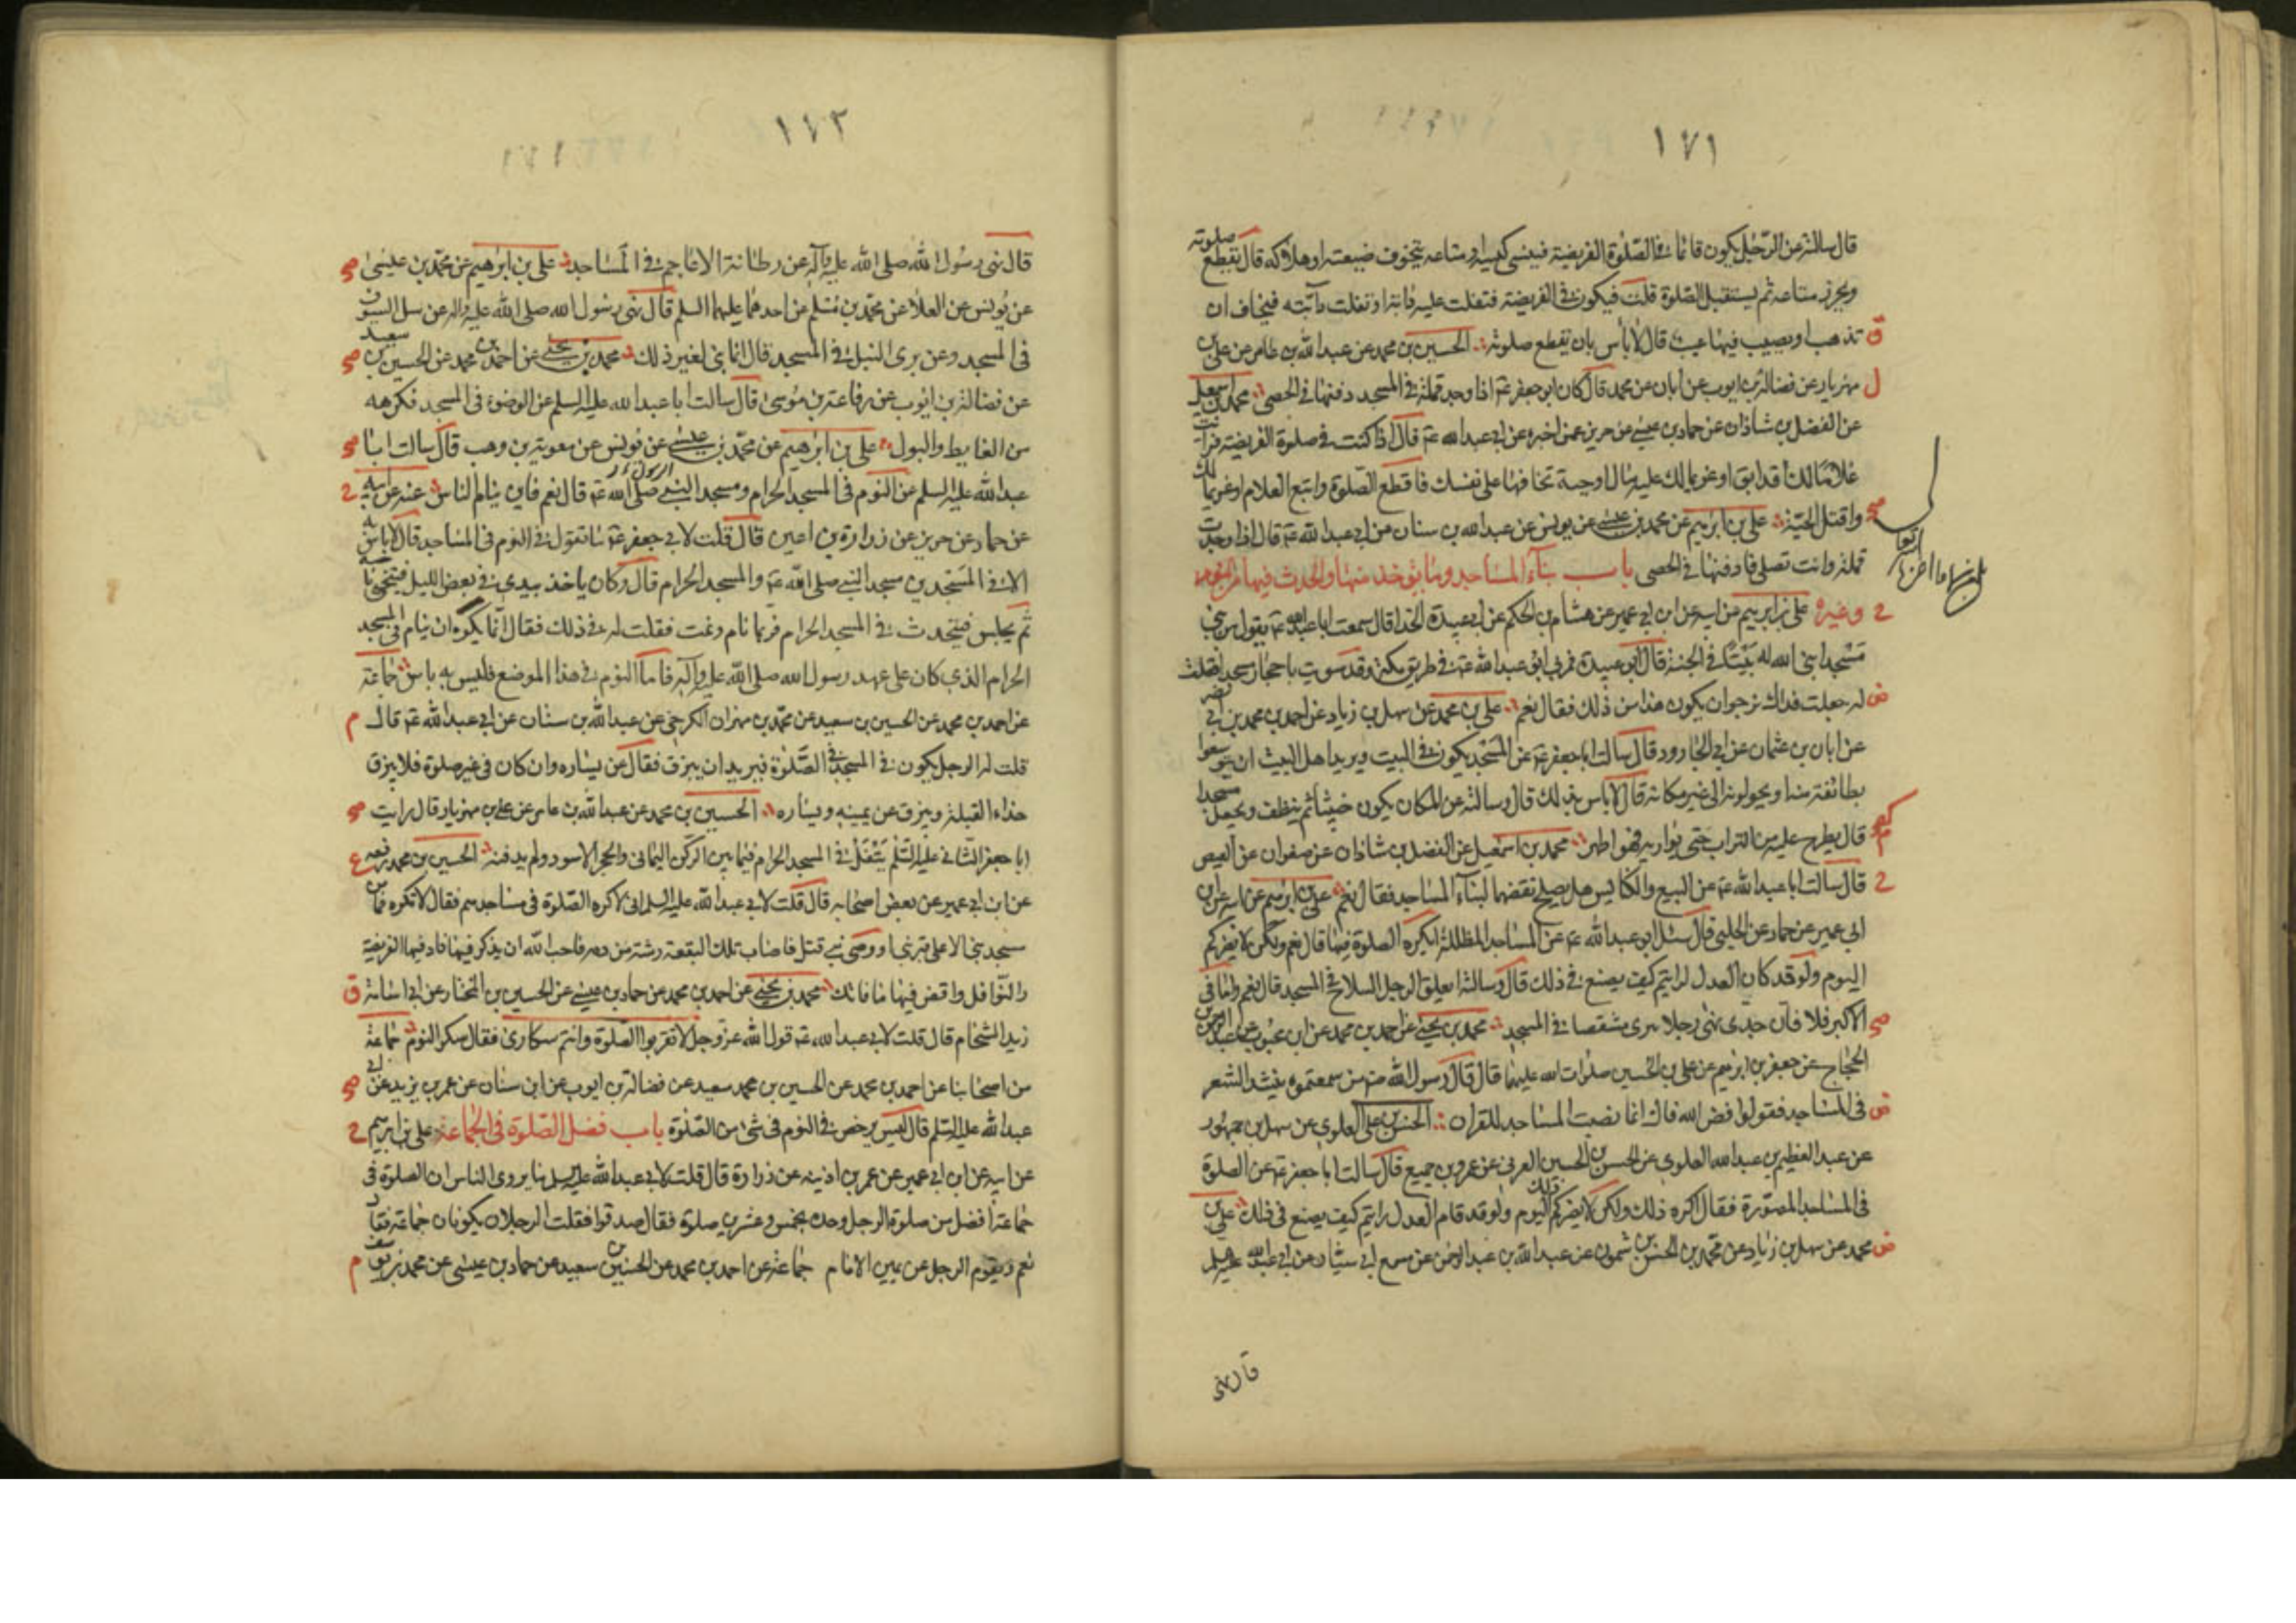 ١٧١
قال سالته عن الرجل يكون قائما في الصلوة الفريضة فينسى كيسه او متاعه يتخوف ضيعته او هلاكه قال يقطع صلوته
ويحرز متاعه ثم يستقبل الصلوة قلت فيكون في الفريضة فتفلت عليه دابته او تفلت دابته فيخاف ان
ق تذهب او يصيب فيها عيب قال لا بأس بان يقطع صلوته الحسين بن محمد عن عبد الله بن عامر عن علي بن
ل مهزيار عن فضالة بن ايوب عن ابان عن محمد قال كان ابو جعفر ع اذا وجد قملة في المسجد دفنها في الحصى محمد بن اسمعيل
عن الفضل بن شاذان عن حماد بن عيسى عن حريز عمن اخبره عن ابي عبد الله ع قال اذا كنت في صلوة الفريضة فرايت
غلاما لك قد ابق او غريما لك عليه مال او حية تخافها على نفسك فاقطع الصلوة واتبع الغلام او غريما لك
صح واقتل الحية علي بن ابرهيم عن محمد بن عيسى عن يونس عن عبد الله بن سنان عن ابي عبد الله ع قال اذا وجدت
قملة وانت تصلي فادفنها في الحصى باب بناء المساجد وما يؤخذ منها والحدث فيها من النوم وغيره
ح علي بن ابرهيم عن ابيه عن ابن ابي عمير عن هشام بن الحكم عن ابي عبيدة الحذا قال سمعت ابا عبد الله ع يقول من بنى
مسجدا بنى الله له بيتا في الجنة قال ابو عبيدة فمر بي ابو عبد الله ع في طريق مكة وقد سويت باحجار مسجدا فقلت
ض له جعلت فداك نرجو ان يكون هذا من ذلك فقال نعم علي بن محمد عن سهل بن زياد عن احمد بن محمد بن ابي نصر
عن ابان بن عثمان عن ابي الجارود قال سالت ابا جعفر ع عن المسجد يكون في البيت ويريد اهل البيت ان يتوسعوا
بطائفة منه او يحولونه الى غير مكانه قال لا باس بذلك قال وسالته عن المكان يكون خبيثا ثم ينظف ويجعل مسجدا
قال يطرح عليه من التراب حتى يواريه فهو اطهر محمد بن اسمعيل عن الفضل بن شاذان عن صفوان عن العيص
ح قال سالت ابا عبد الله ع عن البيع والكنايس هل يصلح نقضها لبناء المساجد فقال نعم علي بن ابرهيم عن ابيه عن ابن
ابي عمير عن حماد عن الحلبي قال سئل ابو عبد الله ع عن المساجد المظللة ايكره الصلوة فيها قال نعم ولكن لا يضركم
اليوم ولو قد كان العدل لرايتم كيف يصنع في ذلك قال وسالته ايعلق الرجل السلاح في المسجد قال نعم واما في
صح الاكبر فلا فان جدي نهى رجلا يبري مشقصا في المسجد محمد بن يحيى عن احمد بن محمد عن ابن محبوب عن عبد الرحمن بن
الحجاج عن جعفر بن ابرهيم عن علي بن الحسين صلوات الله عليهما قال قال رسول الله ص من سمعتموه ينشد الشعر
ض في المساجد فقولوا فض الله فاك انما نصبت المساجد للقران الحسن بن علي العلوي عن سهل بن جمهور
عن عبد العظيم بن عبد الله العلوي عن الحسن بن الحسين العرني عن عمرو بن جميع قال سالت ابا جعفر ع عن الصلوة
في المساجد المصورة فقال اكره ذلك ولكن لا يضركم ذلك اليوم ولو قد قام العدل رايتم كيف يصنع في ذلك علي بن
ض محمد عن سهل بن زياد عن محمد بن الحسن بن شمون عن عبد الله بن عبد الرحمن عن مسمع ابي سيار عن ابي عبد الله عليه السلم
قال نهى
١٧٢
قال نهى رسول الله صلى الله عليه وآله عن رطانة الاعاجم في المساجد علي بن ابرهيم عن محمد بن عيسى صح
عن يونس عن العلا عن محمد بن مسلم عن احدهما عليهما السلم قال نهى رسول الله صلى الله عليه واله عن سل السيوف
في المسجد وعن بري النبل في المسجد قال انما بني لغير ذلك محمد بن يحيى عن احمد بن محمد عن الحسين بن سعيد صح
عن فضالة بن ايوب عن رفاعة بن موسى قال سالت ابا عبد الله عليه السلم عن الوضوء في المسجد فكرهه
من الغايط والبول علي بن ابرهيم عن محمد بن عيسى عن يونس عن معوية بن وهب قال سالت ابا صح
عبد الله عليه السلم عن النوم في المسجد الحرام ومسجد النبي صلى الله ع قال نعم فاين ينام الناس عنه عن ابيه ح
عن حماد عن حريز عن زرارة بن اعين قال قلت لابي جعفر ع ما تقول في النوم في المساجد قال لا باس به
الا في المسجدين مسجد النبي صلى الله ع والمسجد الحرام قال وكان ياخذ بيدي في بعض الليل فيتنحى ناحية
ثم يجلس فيتحدث في المسجد الحرام فربما نام ونمت فقلت له في ذلك فقال انما يكره ان ينام في المسجد
الحرام الذي كان على عهد رسول الله صلى الله عليه وآله فاما النوم في هذا الموضع فليس به باس جماعة
عن احمد بن محمد عن الحسين بن سعيد عن محمد بن مهران الكرخي عن عبد الله بن سنان عن ابي عبد الله ع قال م
قلت له الرجل يكون في المسجد في الصلوة فيريد ان يبزق فقال عن يساره وان كان في غير صلوة فلا يبزق
حذاء القبلة ويبزق عن يمينه ويساره الحسين بن محمد عن عبد الله بن عامر عن علي بن مهزيار قال رايت صح
ابا جعفر الثاني عليه السلم يتفل في المسجد الحرام فيما بين الركن اليماني والحجر الاسود ولم يدفنه الحسين بن محمد رفعه ع
عن ابن ابي عمير عن بعض اصحابه قال قلت لابي عبد الله عليه السلم اني لاكره الصلوة في مساجدهم فقال لا تكره فما من
مسجد بني الا على قبر نبي او وصي نبي قتل فاصاب تلك البقعة رشة من دمه فاحب الله ان يذكر فيها فاد فيها الفريضة
والنوافل واقض فيها ما فاتك محمد بن يحيى عن احمد بن محمد عن حماد بن عيسى عن الحسين بن المختار عن ابي اسامة ق
زيد الشحام قال قلت لابي عبد الله ع قول الله عز وجل لا تقربوا الصلوة وانتم سكارى فقال سكر النوم جماعة
من اصحابنا عن احمد بن محمد عن الحسين بن محمد سعيد عن فضالة بن ايوب عن ابن سنان عن عمر بن يزيد عن ابي صح
عبد الله عليه السلم قال ليس يرخص في النوم في شئ من الصلوة باب فضل الصلوة في الجماعة علي بن ابرهيم ح
عن ابيه عن ابن ابي عمير عن عمر بن اذينه عن زرارة قال قلت لابي عبد الله عليه السلم ما يروي الناس ان الصلوة في
جماعة افضل من صلوة الرجل وحده بخمس وعشرين صلوة فقال صدقوا فقلت الرجلان يكونان جماعة فقال
نعم ويقوم الرجل عن يمين الامام جماعة عن احمد بن محمد عن الحسين بن سعيد عن حماد بن عيسى عن محمد بن يوسف م